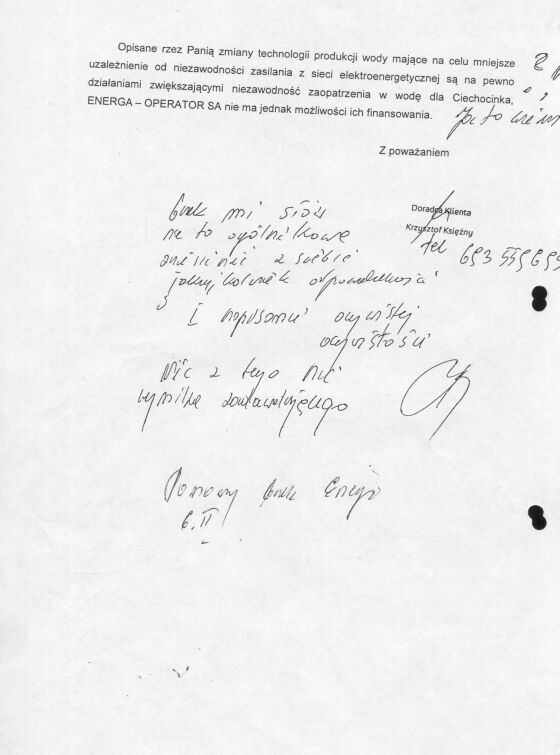 Opisane rzez Panią zmiany technologii produkcji wody mające na celu mniejsze
uzależnienie od niezawodności zasilania z sieci elektroenergetycznej są na pewno
działaniami zwiększającymi niezawodność zaopatrzenia w wodę dla Ciechocinka,
ENERGA – OPERATOR SA nie ma jednak możliwości ich finansowania.
Ja to wiem
Z poważaniem
Doradca Klienta
Krzysztof Księżny
Tel 693 556
Brak mi słów
na to ogólnikowe
z siebie
jakiejkolwiek odpowiedzialności
I napisanie oczywistej
oczywistości
Nic z tego nie
wynika zadawalającego
brak Energa
6. II